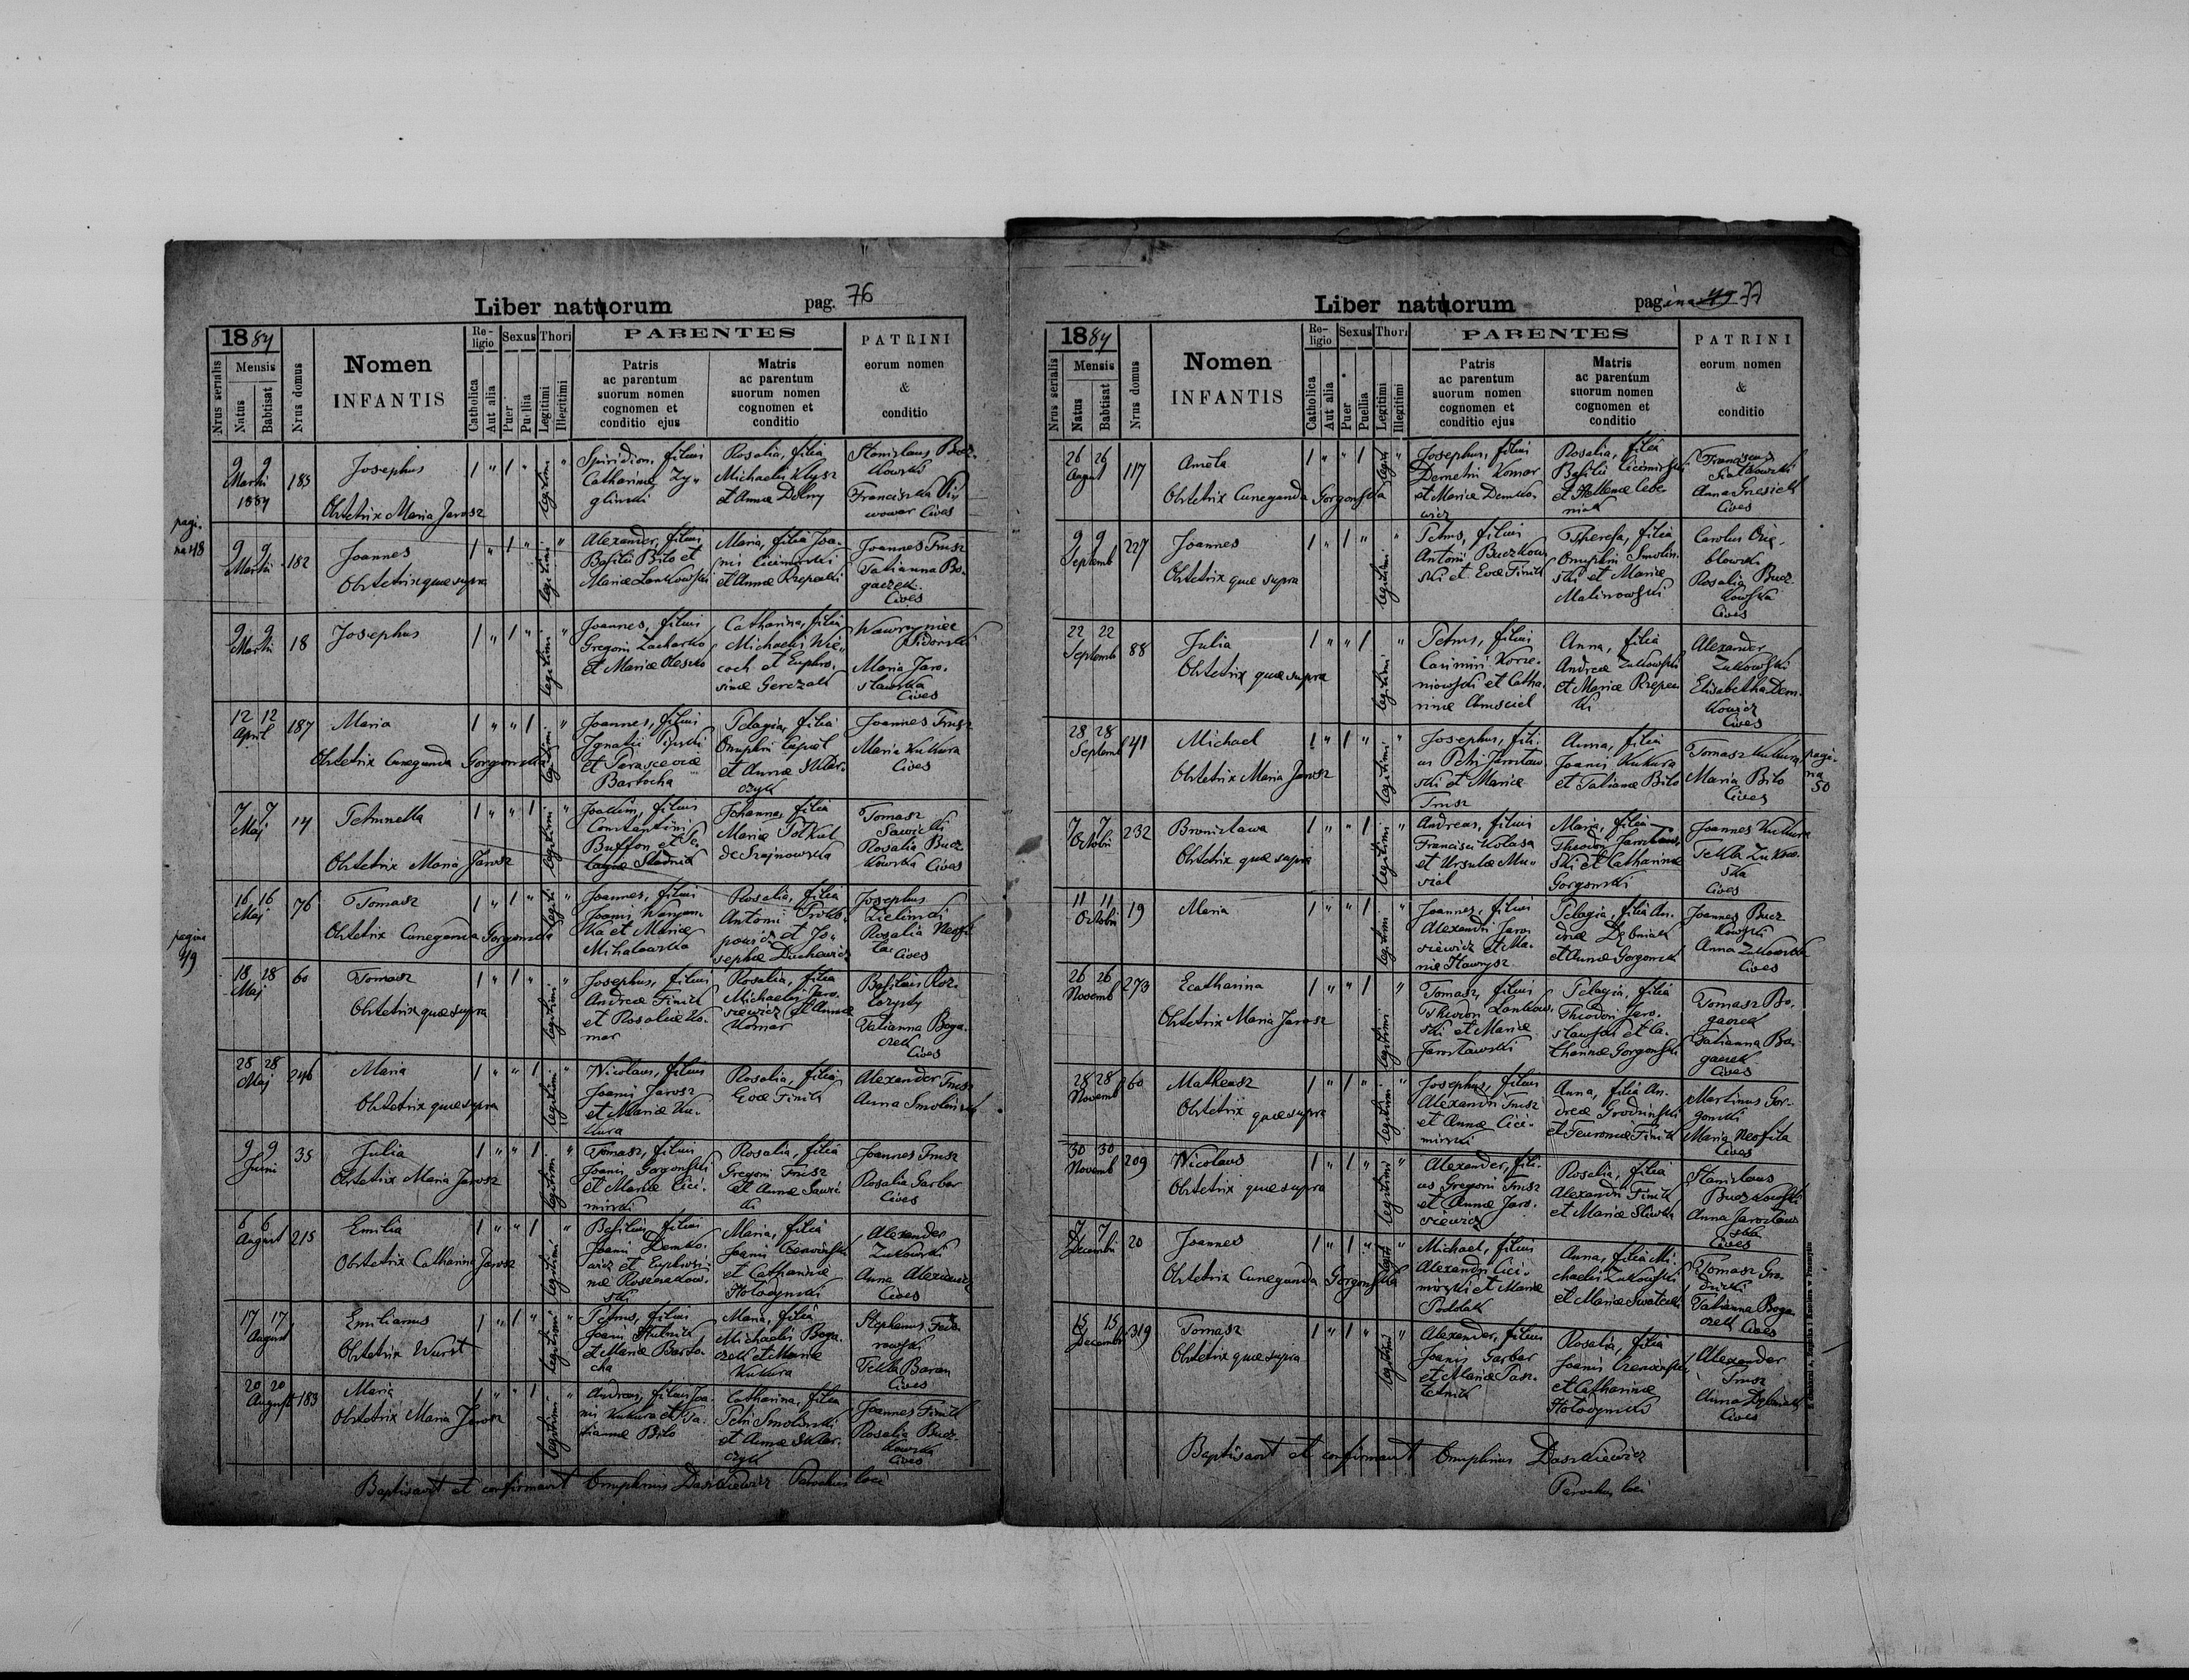 Liber natuorum pag. 76
1884
Nrus serialis
Mensis
Natus
Babtisat
Nrus domus
Nomen
INFANTIS
Re-
ligio
Catholica
Aut alia
Sexus
Puer
Puella
Thori
Legitimi
Illegitimi
PARENTES
Patris
ac parentum
suorum nomen
cognomen et
conditio ejus
Matris
ac parentum
suorum nomen
cognomen et
conditio
PATRINI
eorum nomen
&
conditio
9 9
Martii
1884
185
Josephus
Obstetrix Maria Jarosz
1 " 1 "
legitimi "
Spiridion, filius
Catharinæ Zy-
glinski
Rosalia, filia
Michaelis Klysz
et Annæ Dolny
Stanislaus Bucz-
kowski
Franciszka
Cives
pagi-
na 48
9 9
Martii
182
Joannes
Obstetrix quæ supra
1 " 1 "
legitimi "
Alexander, filius
Basilii Bilo et
Mariæ Lankowski
Maria, filia Joa-
nis Cicimirski
et Annæ Rzepecki
Joannes Trusz
Tatianna Bo-
gaczek
Cives
9 9
Martii
18
Josephus
1 " 1 "
legitimi "
Joannes, filius
Gregorii Zacharko
et Mariæ Oleszko
Catharina, filia
Michaelis Wie-
coch et Euphro-
sinæ Gerczak
Wawrzyniec
Sidorski
Maria Jaro-
slawska
Cives
12 12
April
187
Maria
Obstetrix Cunegunda Gorgonska
1 " " 1
legitimi "
Joannes, filius
Ignatii
et Parasceviæ
Bartocha
Pelagia, filia
Onuphrii Capał
et Annæ Sklar-
czyk
Joannes Trusz
Maria Kukura
Cives
7 7
Maj
14
Petrunella
Obstetrix Maria Jarosz
1 " " 1
legitimi "
Joachim, filius
Constantini
Buffon et Pe-
lagiæ
Johanna, filia
Mariæ
de Szajnowska
Tomasz
Sawicki
Rosalia Bucz-
kowska Cives
pagina
49
16 16
Maj
76
Tomasz
Obstetrix Cunegunda Gorgonska
1 " 1 "
legiti "
Joannes, filius
Joanis
et Mariæ
Michalowska
Rosalia, filia
Antonii Proko-
powicz et Jo-
sephæ Duchewicz
Josephus
Zielinski
Rosalia Neofi-
ta Cives
18 18
Maj
60
Tomasz
Obstetrix quæ supra
1 " 1 "
legitimi "
Josephus, filius
Andreæ Finik
et Rosaliæ Ko-
mar
Rosalia, filia
Michaelis Jaro-
siewicz et Annæ
Komar
Basilius
Tatianna Boga-
czek
Cives
28 28
Maj
246
Maria
Obstetrix quæ supra
1 " " 1
legitimi "
Nicolaus, filius
Joanis Jarosz
et Mariæ Ku-
kura
Rosalia, filia
Evæ Finik
Alexander Trusz
Anna Smolinska
9 9
Juni
35
Julia
Obstetrix Maria Jarosz
1 " " 1
legitimi "
Tomasz, filius
Joanis Gorgonski
et Mariæ Cici-
mirski
Rosalia, filia
Gregorii Trusz
et Annæ Sawic
ki
Joannes Trusz
Rosalia Garbar
Cives
6 6
August
215
Emilia
Obstetrix Catharina Jarosz
1 " " 1
legitimi "
Basilius, filius
Joanis Demko-
wicz et Euphrosi-
næ
ski
Maria, filia
Joanis Czerwinski
et Catharinæ
Holodynski
Alexander
Zukowski
Anna Alexiewicz
Cives
17 17
August
Emilianus
Obstetrix Wurst
1 " 1 "
legitimi "
Petrus, filius
Joanis
et Mariæ Barto-
cha
Maria, filia
Michaelis Boga-
czek et Mariæ
Kukura
Stephanus Fedo-
rowski
Tekla Baran
Cives
20 20
August
183
Maria
Obstetrix Maria Jarosz
1 " " 1
legitimi "
Andreas, filius Joa-
nis Kukura et Ta-
tiannæ Bilo
Catharina, filia
Petri Smolinski
et Annæ Sklar-
czyk
Joannes Finik
Rosalia Bucz-
kowska
Cives
Baptisavit et confirmavit Onuphrius Daszkiewicz Parochus loci
Liber natuorum pagina 49 77
1884
Nrus serialis
Mensis
Natus
Babtisat
Nrus domus
Nomen
INFANTIS
Re-
ligio
Catholica
Aut alia
Sexus
Puer
Puella
Thori
Legitimi
Illegitimi
PARENTES
Patris
ac parentum
suorum nomen
cognomen et
conditio ejus
Matris
ac parentum
suorum nomen
cognomen et
conditio
PATRINI
eorum nomen
&
conditio
26 26
August
117
Amela
Obstetrix Cunegunda Gorgonska
1 " " 1
legiti "
Josephus, filius
Demetri Komar
et Mariæ Demko-
wicz
Rosalia, filia
Basilii Cicimirski
et Hellenæ Cebe-
niak
Franciscus
Siatkowski
Anna Gnesick
Cives
9 9
Septemb
227
Joannes
Obstetrix quæ supra
1 " 1 "
legitimi "
Petrus, filius
Antonii Buczkow-
ski et Evæ Finik
Theresa, filia
Onuphrii Smolin-
ski et Mariæ
Malinowski
Carolus
blowski
Rosalia Bucz-
kowska
Cives
22 22
Septemb
88
Julia
Obstetrix quæ supra
1 " " 1
legitimi "
Petrus, filius
Casimiri Korze-
niowski et Catha-
rinæ
Anna, filia
Andreæ Zukowski
et Mariæ Rzepec
ki
Alexander
Zukowski
Elisabetha Dem-
kowicz
Cives
28 28
Septemb
41
Michael
Obstetrix Maria Jarosz
1 " 1 "
legitimi "
Josephus, fili-
us Petri Jaroslaw-
ski et Mariæ
Trusz
Anna, filia
Joanis Kukura
et Tatianæ Bilo
Tomasz Kukura
Maria Bilo
Cives
pagi-
na
50
7 7
Octobr
232
Bronisława
Obstetrix quæ supra
1 " " 1
legitimi "
Andreas, filius
Francisci Kolasa
et Ursulæ Mu-
siał
Maria, filia
Theodori Jaroslaw-
ski et Catharinæ
Gorgonski
Joannes Kukura
Tekla Zukow-
ska
Cives
11 11
Octobr
19
Maria
1 " " 1
legitimi "
Joannes, filius
Alexandri Jaro-
siewicz et Ma-
riæ Hawrysz
Pelagia, filia An-
dreæ Dębniak
et Annæ Gorgonsk
Joannes Bucz-
kowski
Anna Zukowska
Cives
26 26
Novemb
273
Ecatharina
Obstetrix Maria Jarosz
1 " " 1
legitimi "
Tomasz, filius
Theodori Lankow-
ski et Mariæ
Jaroslawski
Pelagia, filia
Theodori Jaro-
slawski et Ca-
tharinæ Gorgonski
Tomasz Bo-
gaczek
Tatianna Bo-
gaczek
Cives
28 28
Novemb
60
Matheusz
Obstetrix quæ supra
1 " 1 "
legitimi "
Josephus, filius
Alexandri Trusz
et Annæ Cici-
mirski
Anna, filia An-
dreæ Grodzinski
et Feuroniæ Finik
Martinus Gor-
gonski
Maria Neofita
Cives
30 30
Novemb
209
Nicolaus
Obstetrix quæ supra
1 " 1 "
legitimi "
Alexander, fili-
us Gregorii Trusz
et Annæ Jaro-
siewicz
Rosalia, filia
Alexandri Finik
et Mariæ Sliwka
Stanislaus
Buczkowski
Anna Jaroslaw-
ska
Cives
7 7
Decembr
20
Joannes
Obstetrix Cunegunda Gorgonska
1 " 1 "
legiti "
Michael, filius
Alexandri Cici-
mirski et Mariæ
Podolak
Anna, filia Mi-
chaelis Zukowski
et Mariæ
Tomasz Gro-
dzicki
Tatianna Boga-
czek Cives
15 15
Decembr
319
Tomasz
Obstetrix quæ supra
1 " 1 "
legitimi "
Alexander, filius
Joanis Garbar
et Mariæ Pasz-
Rosalia, filia
Joanis Czerwinski
et Catharinæ
Holodynski
Alexander
Trusz
Anna Dębniak
Cives
Baptisavit et confirmavit Onuphrius Daszkiewicz
Parochus loci